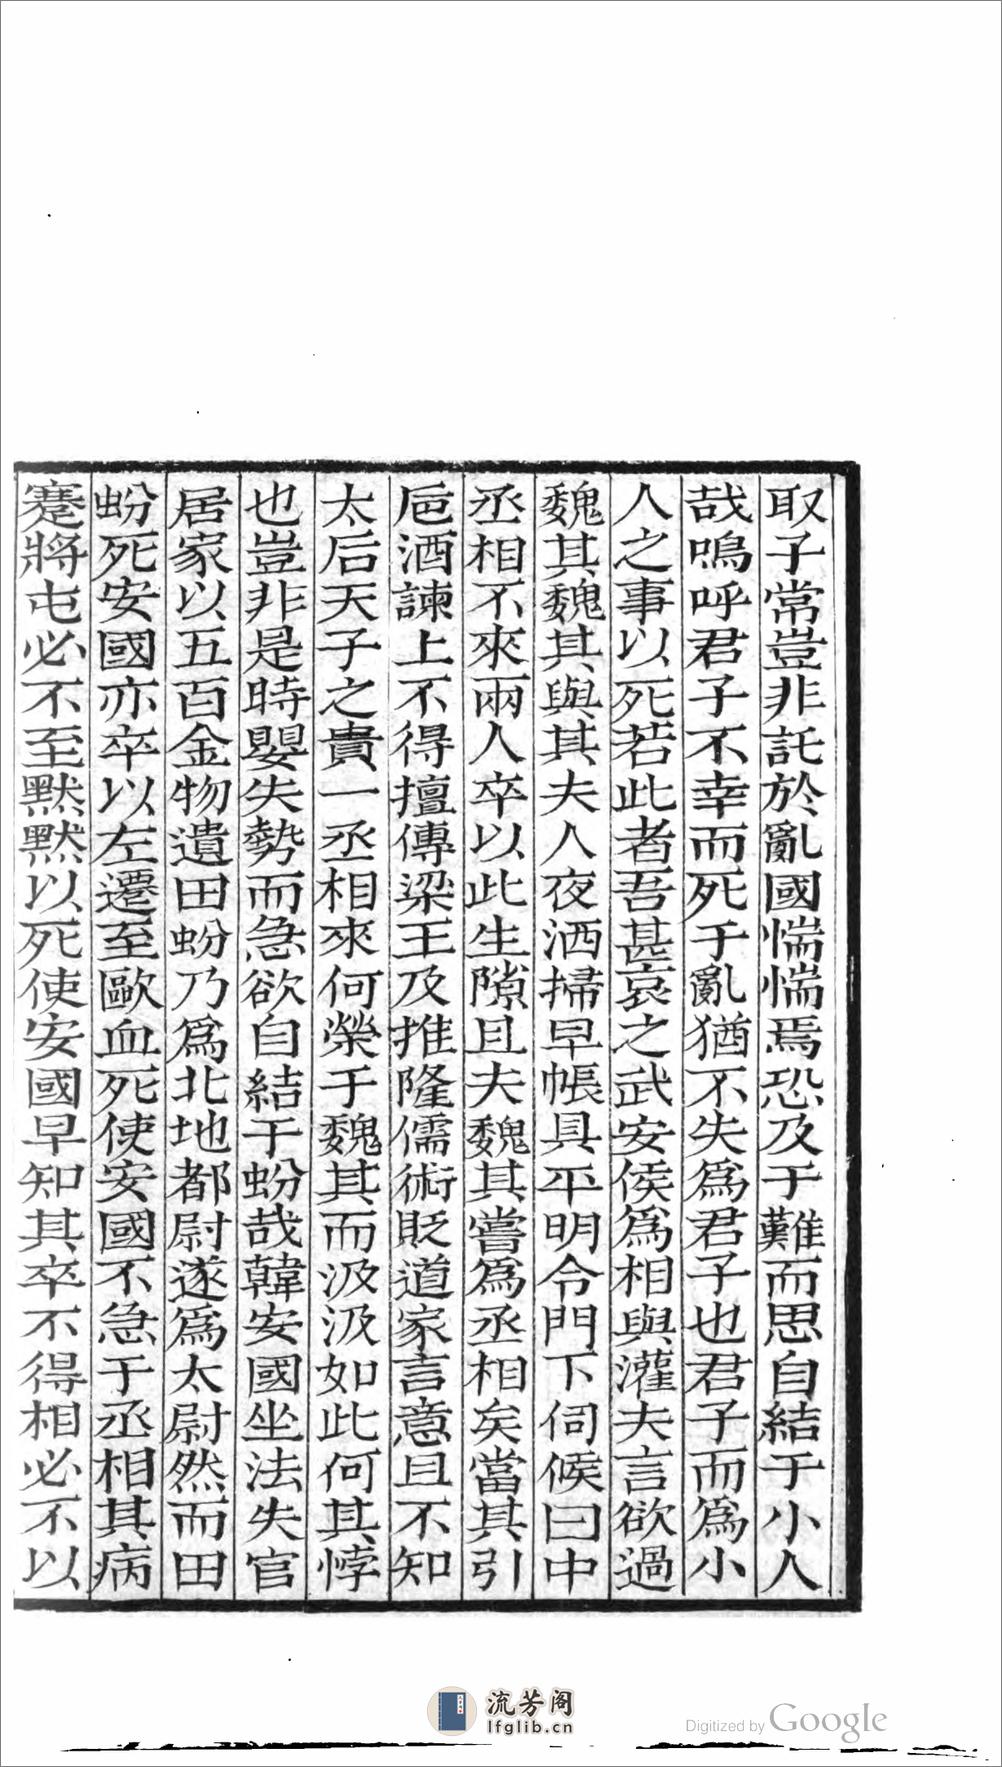 取子常豈非託於亂國惴惴焉恐及于難而思自結于小人
哉嗚呼君子不幸而死于亂猶不失爲君子也君子而爲小
人之事以死若此者吾甚哀之武安侯爲相與灌夫言欲過
魏其魏其與其夫人夜洒掃早帳具平明令門下伺候曰中
丞相不來兩人卒以此生隙且夫魏其嘗爲丞相矣當其引
巵酒諫上不得擅傳梁王及推隆儒術貶道家言意且不知
太后天子之貴一丞相來何榮于魏其而汲汲如此何其悖
也豈非是時嬰失勢而急欲自結于蚡哉韓安國坐法失官
居家以五百金物遺田蚡乃爲北地都尉遂爲太尉然而田
蚡死安國亦卒以左遷至歐血死使安國不急于丞相其病
蹇將屯必不至黙黙以死使安國早知其卒不得相必不以
流芳阁
lfglib.cn
Digitized by Google